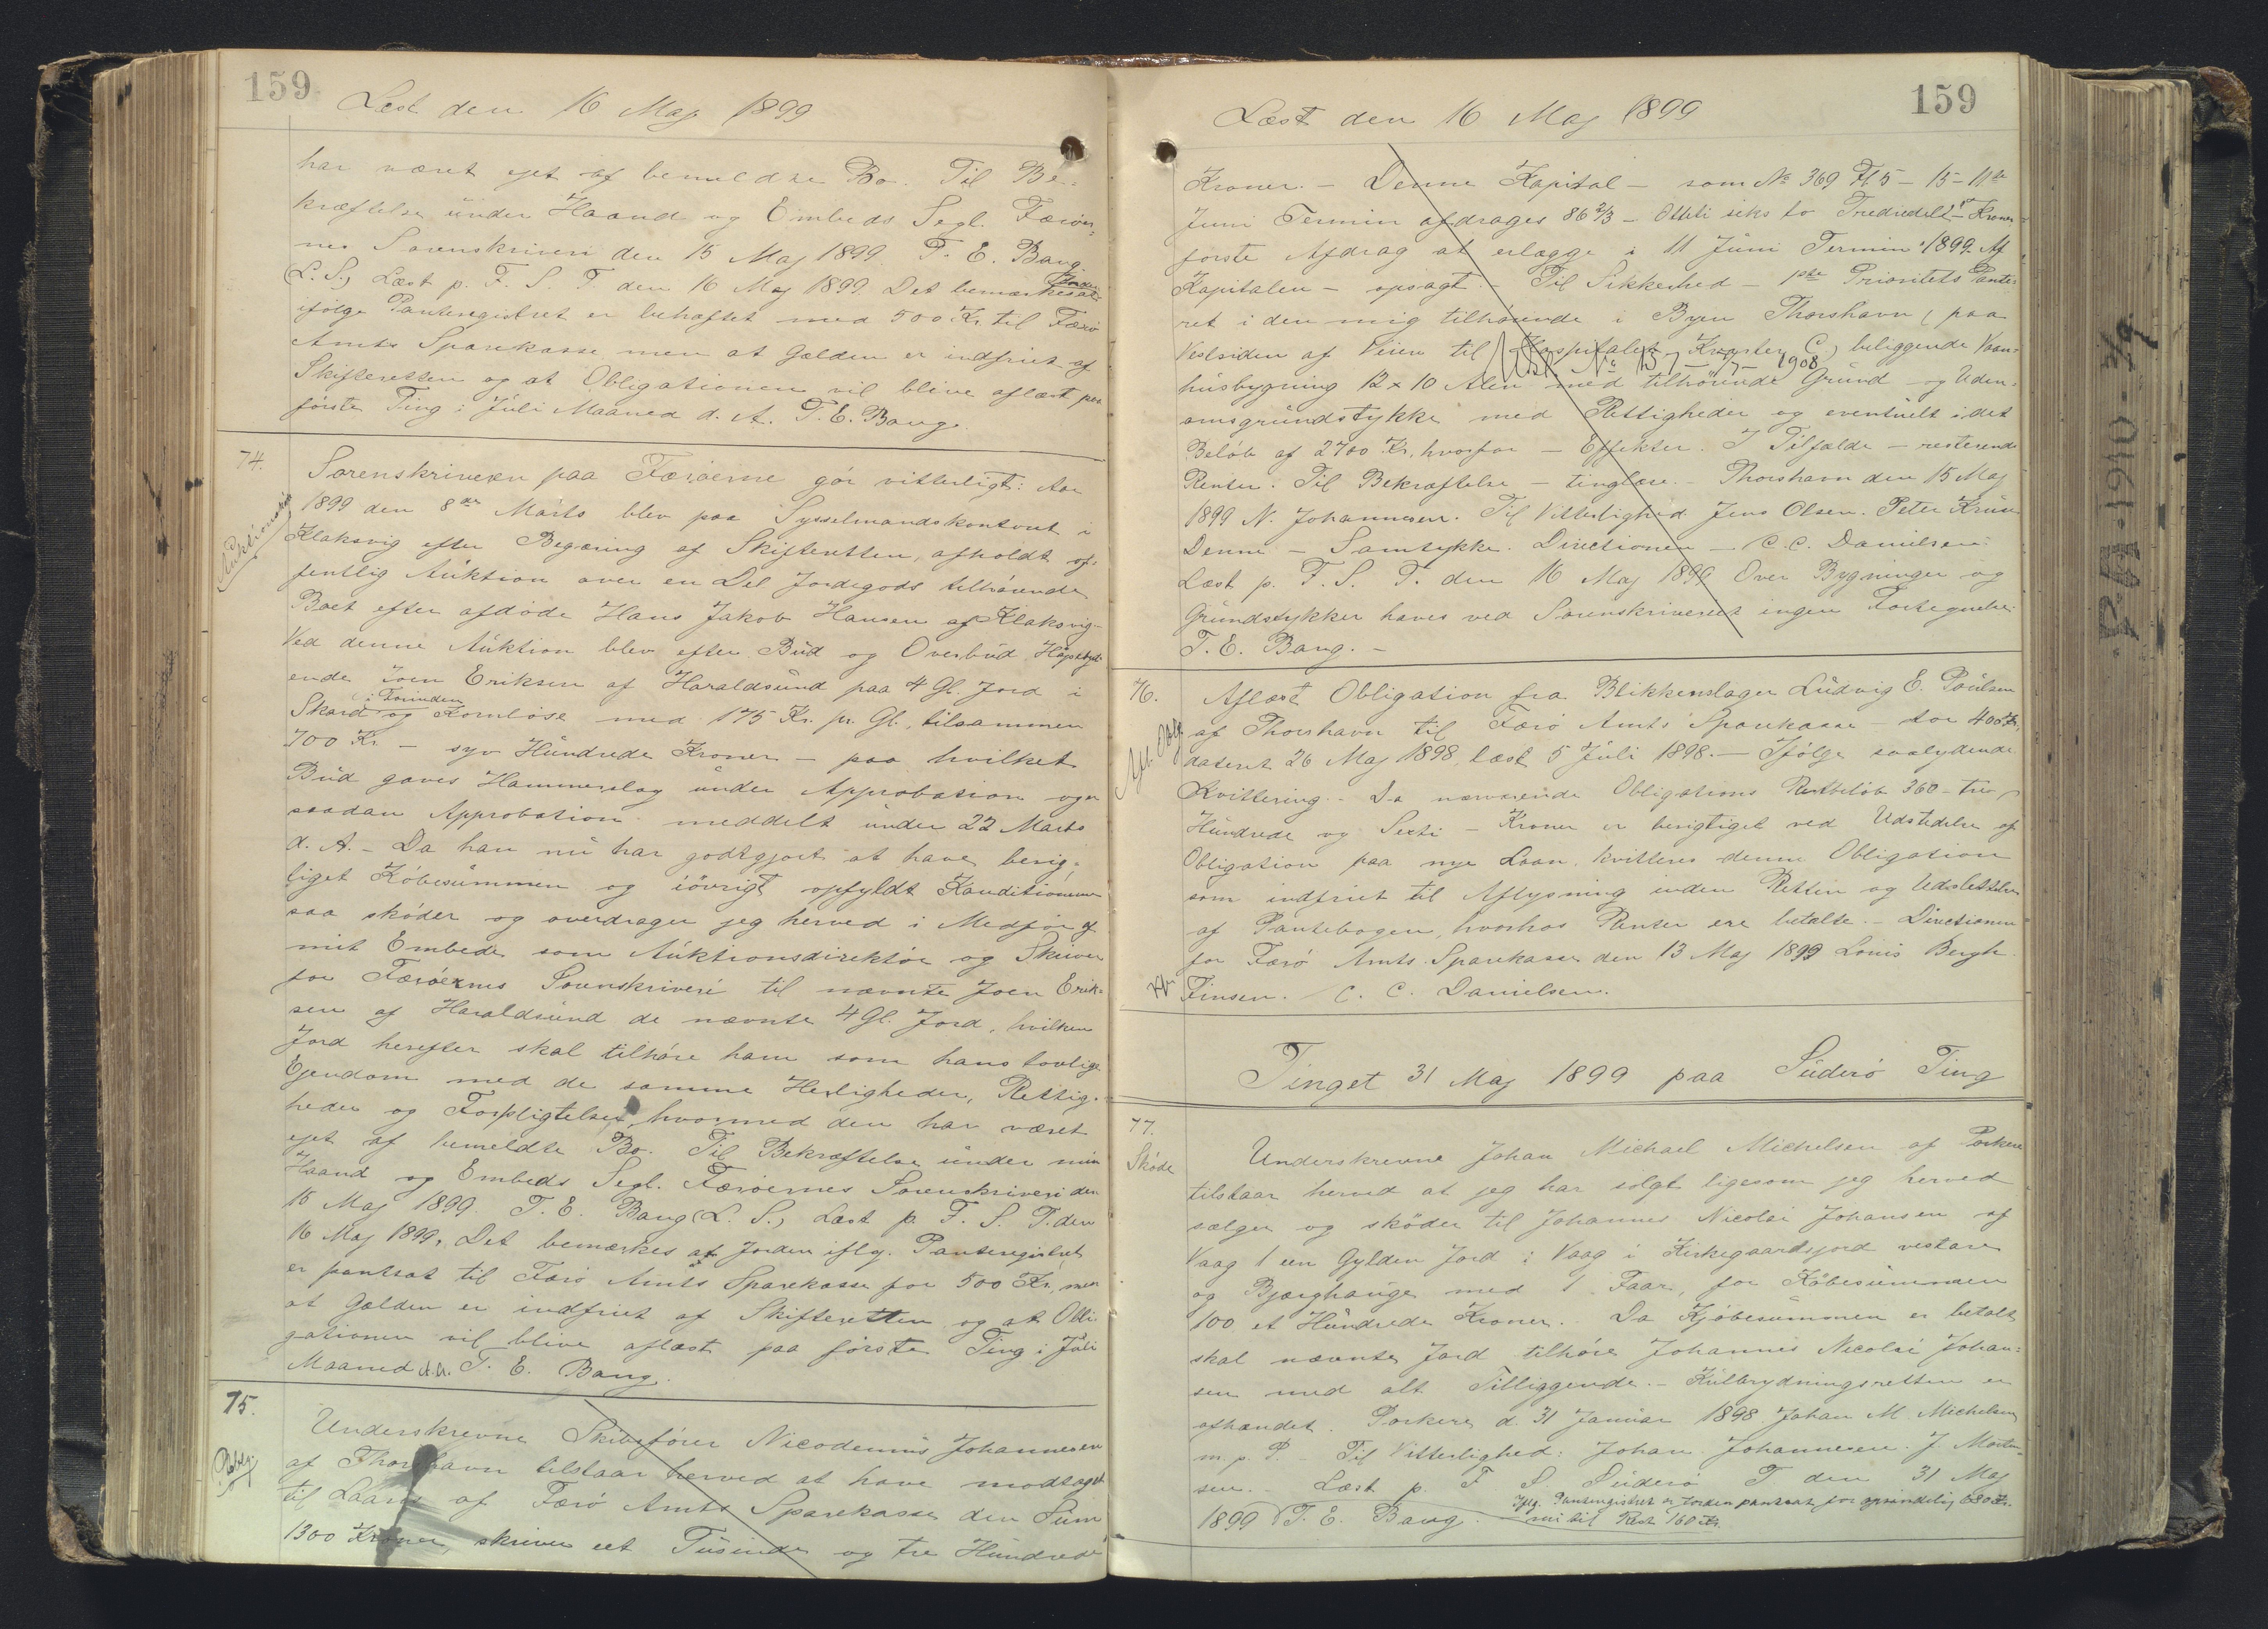 159
Læst den 16 Maj 1899
har været ejet af bemeldte Bo. Til Be-
kræftelse under Haand og Embeds Segl. Færøer-
nes Sorenskriveri den 15 Maj 1899. T. E. Bang
(L. S.) Læst p. F. S. T. den 16 Maj 1899 Det bemærkes at Jorden
ifølge Panteregistret er behæftet med 500 Kr. til Færø
Amts Sparekasse men at Gælden er indfriet af
Skifteretten og at Obligationen vil blive aflæst paa
første Ting i Juli Maaned d. A. T. E. Bang.
74.
Auktionsskjøde
Sorenskriveren paa Færøerne gör vitterligt: Aar
1899 den 8de Marts blev paa Sysselmandskontoret i
Klaksvig efter Begæring af Skifteretten, afholdt of-
fentlig Auktion over en Del Jordegods tilhørende
Boet efter afdøde Hans Jakob Hansen af Klaksvig-
Ved denne Auktion blev efter Bud og Overbud Højstbyd-
ende Joen Eriksen af Haraldsund paa 4 Gl. Jord i
Skard i Torinden og Kornløse med 175 Kr. pr. Gl., tilsammen
700 Kr. - syv Hundrede Kroner - paa hvilket
Bud gaves Hammerslag under Approbation og er
saadan Approbation meddelt under 22 Marts
d. A. - Da han nu har godtgjort at have berig-
tiget Købesummen og iövrigt opfyldt Konditionerne
saa skøder og overdrager jeg herved i Medfør af
mit Embede som Auktionsdirektör og Skriver
for Færøernes Sorenskriveri til nævnte Joen Erik-
sen af Haraldsund de nævnte 4 Gl. Jord, hvilken
Jord herefter skal tilhøre ham som hans lovlige
Ejendom med de samme Herligheder, Rettig-
heder og Forpligtelser, hvormed den har været
ejet af bemeldte Bo. Til Bekræftelse under min
Haand og Embeds Segl. Færøernes Sorenskriveri den
15 Maj 1899. T. E. Bang (L. S.) Læst p. F. S. T. den
16 Maj 1899. Det bemærkes at Jorden iflg. Panteregistret
er pantsat til Færø Amts Sparekasse for 500 Kr., men
at Gælden er indfriet af Skifteretten og at Obli-
gationen vil blive aflæst paa første Ting i Juli
Maaned d.A. T. E. Bang.
75.
Oblg.
Underskrevne Skibsfører Nicodemus Johannesen
af Thorshavn tilstaar herved at have modtaget
til Laans af Færø Amts Sparekasse den Sum
1300 Kroner, skriver eet Tusinde og tre Hundrede
159
Læst den 16 Maj 1899
Kroner. - Denne Kapital - som No 369 5 - 15 - 11te
Juni Termin afdrages 86 2/3 - Otteti seks to Trediedels - Kroner
første Afdrag at erlægge i 11 Juni Termin 1899. Af
Kapitalen - opsagt. - Til Sikkerhed - 1ste Prioritets Pante-
ret i den mig tilhørende i Byen Thorshavn (paa
Vestsiden af Veien til Hospitalet, Kvarter C) beliggende Vaan-
Udsl. No 15 1908
husbygning 12 x 10 Alen med tilhørende Grund og Uden-
omsgrundstykke med Rettigheder og eventuelt i det
Beløb af 2700 Kr. hvorfor - Effekter. I Tilfælde - resterende
Renter. Til Bekræftelse - tinglæse. Thorshavn den 15 Maj
1899 N. Johannesen. Til Vitterlighed Jens Olsen. Peter Kruse
Denne - Samtykke. Directionen - C. C. Danielsen
Læst p. F. S. T. den 16 Maj 1899 Over Bygninger og
Grundstykker haves ved Sorenskriveriet ingen Fortegnelse
T. E. Bang. -
76.
Afl. Oblg.
Aflæst Obligation fra Blikkenslager Ludvig E. Poulsen
af Thorshavn til Færø Amts Sparekasse for 400 Kr.
dateret 26 Maj 1898, læst 5 Juli 1898. - Ifølge saalydende
Kvittering. - Da nærværende Obligations Restbeløb 360 - tre
Hundrede og Sexti - Kroner er berigtiget ved Udstedelse af
Obligation paa nye Laan, kvitteres denne Obligation
som indfriet til Aflysning inden Retten og Udslettelse
af Pantebogen, hvorhos Renter ere betalte. - Directionen
for Færø Amts Sparekasse den 13 Maj 1899 Louis Bergh
Finsen. C. C. Danielsen.
Tinget 31 Maj 1899 paa Suderø Ting
77.
Skøde
Underskrevne Johan Michael Michelsen af Porkere
tilstaar herved at jeg har solgt ligesom jeg herved
sælger og skøder til Johannes Nicolai Johansen af
Vaag 1 een Gylden Jord i Vaag i Kirkegaardsjord vestare
og Bjærghauge med 1 Faar, for Købesummen
100 et Hundrede Kroner. Da Kjøbesummen er betalt
skal nævnte Jord tilhøre Johannes Nicolai Johan-
sen med alt Tilliggende. - Kulbrydningsretten er
afhændet. Porkere d. 31 Januar 1898 Johan M. Michelsen
m. p. P - Til Vitterlighed: Johan Johannesen. J. Morten-
sen. - Læst p. F S. Suderø T den 31 Maj
1899 T. E. Bang. Iflg. Panteregistret er Jorden pantsat for oprindelig 680 Kr.
nu til Rest 160 Kr.